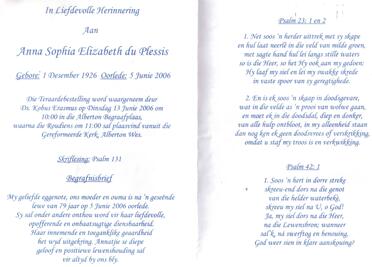 In Liefdevolle Herinnering
Aan
Anna Sophia Elizabeth du Plessis
Gebore: 1 Desember 1926 Oorlede: 5 Junie 2006
Die Teraardebestelling word waargeneem deur
Ds. Kobus Erasmus op Dinsdag 13 Junie 2006 om
10:00 in die Alberton Begraafplaas,
waarna die Roudiens om 11:00 sal plaasvind vanuit die
Gereformeerde Kerk, Alberton Wes.
Skriflesing: Psalm 131
Begrafnisbrief
My geliefde eggenote, ons moeder en ouma is na 'n geseënde
lewe van 79 jaar op 5 Junie 2006 oorlede.
Sy sal onder andere onthou word vir haar liefdevolle,
opofferende en onbaatsugtige diensbaarheid.
Haar innemende en toeganklike gaardheid
het wyd uitgekring. Annatjie se diepe
geloof en positiewe lewenshouding sal
vir altyd by ons bly.
Psalm 23: 1 en 2
1. Net soos 'n herder uittrek met sy skape
en hul laat neerlê in die veld van milde groen,
met sagte hand hul lei langs stille waters
so is die Heer, so het Hy ook aan my gedoen:
Hy laaf my siel en lei my swakke skrede
in vaste spoor van sy geregtighede.
2. En is ek soos 'n skaap in doodsgevaar,
wat in die velde as 'n prooi van wolwe gaan,
en moet ek in die doodsdal, diep en donker,
van alle hulp ontbloot, in my alleenheid staan
dan nog ken ek geen doodsvrees of verskrikking,
omdat u staf my troos is en verkwikking.
Psalm 42: 1
1. Soos 'n hert in dorre streke
skreeu-end dors na die genot
van die helder waterbeke,
skreeu my siel na U, o God!
Ja, my siel dors na die Heer,
na die Lewensbron; wanneer
sal'k, na swerftog en benouing,
God weer sien in klare aanskouing?